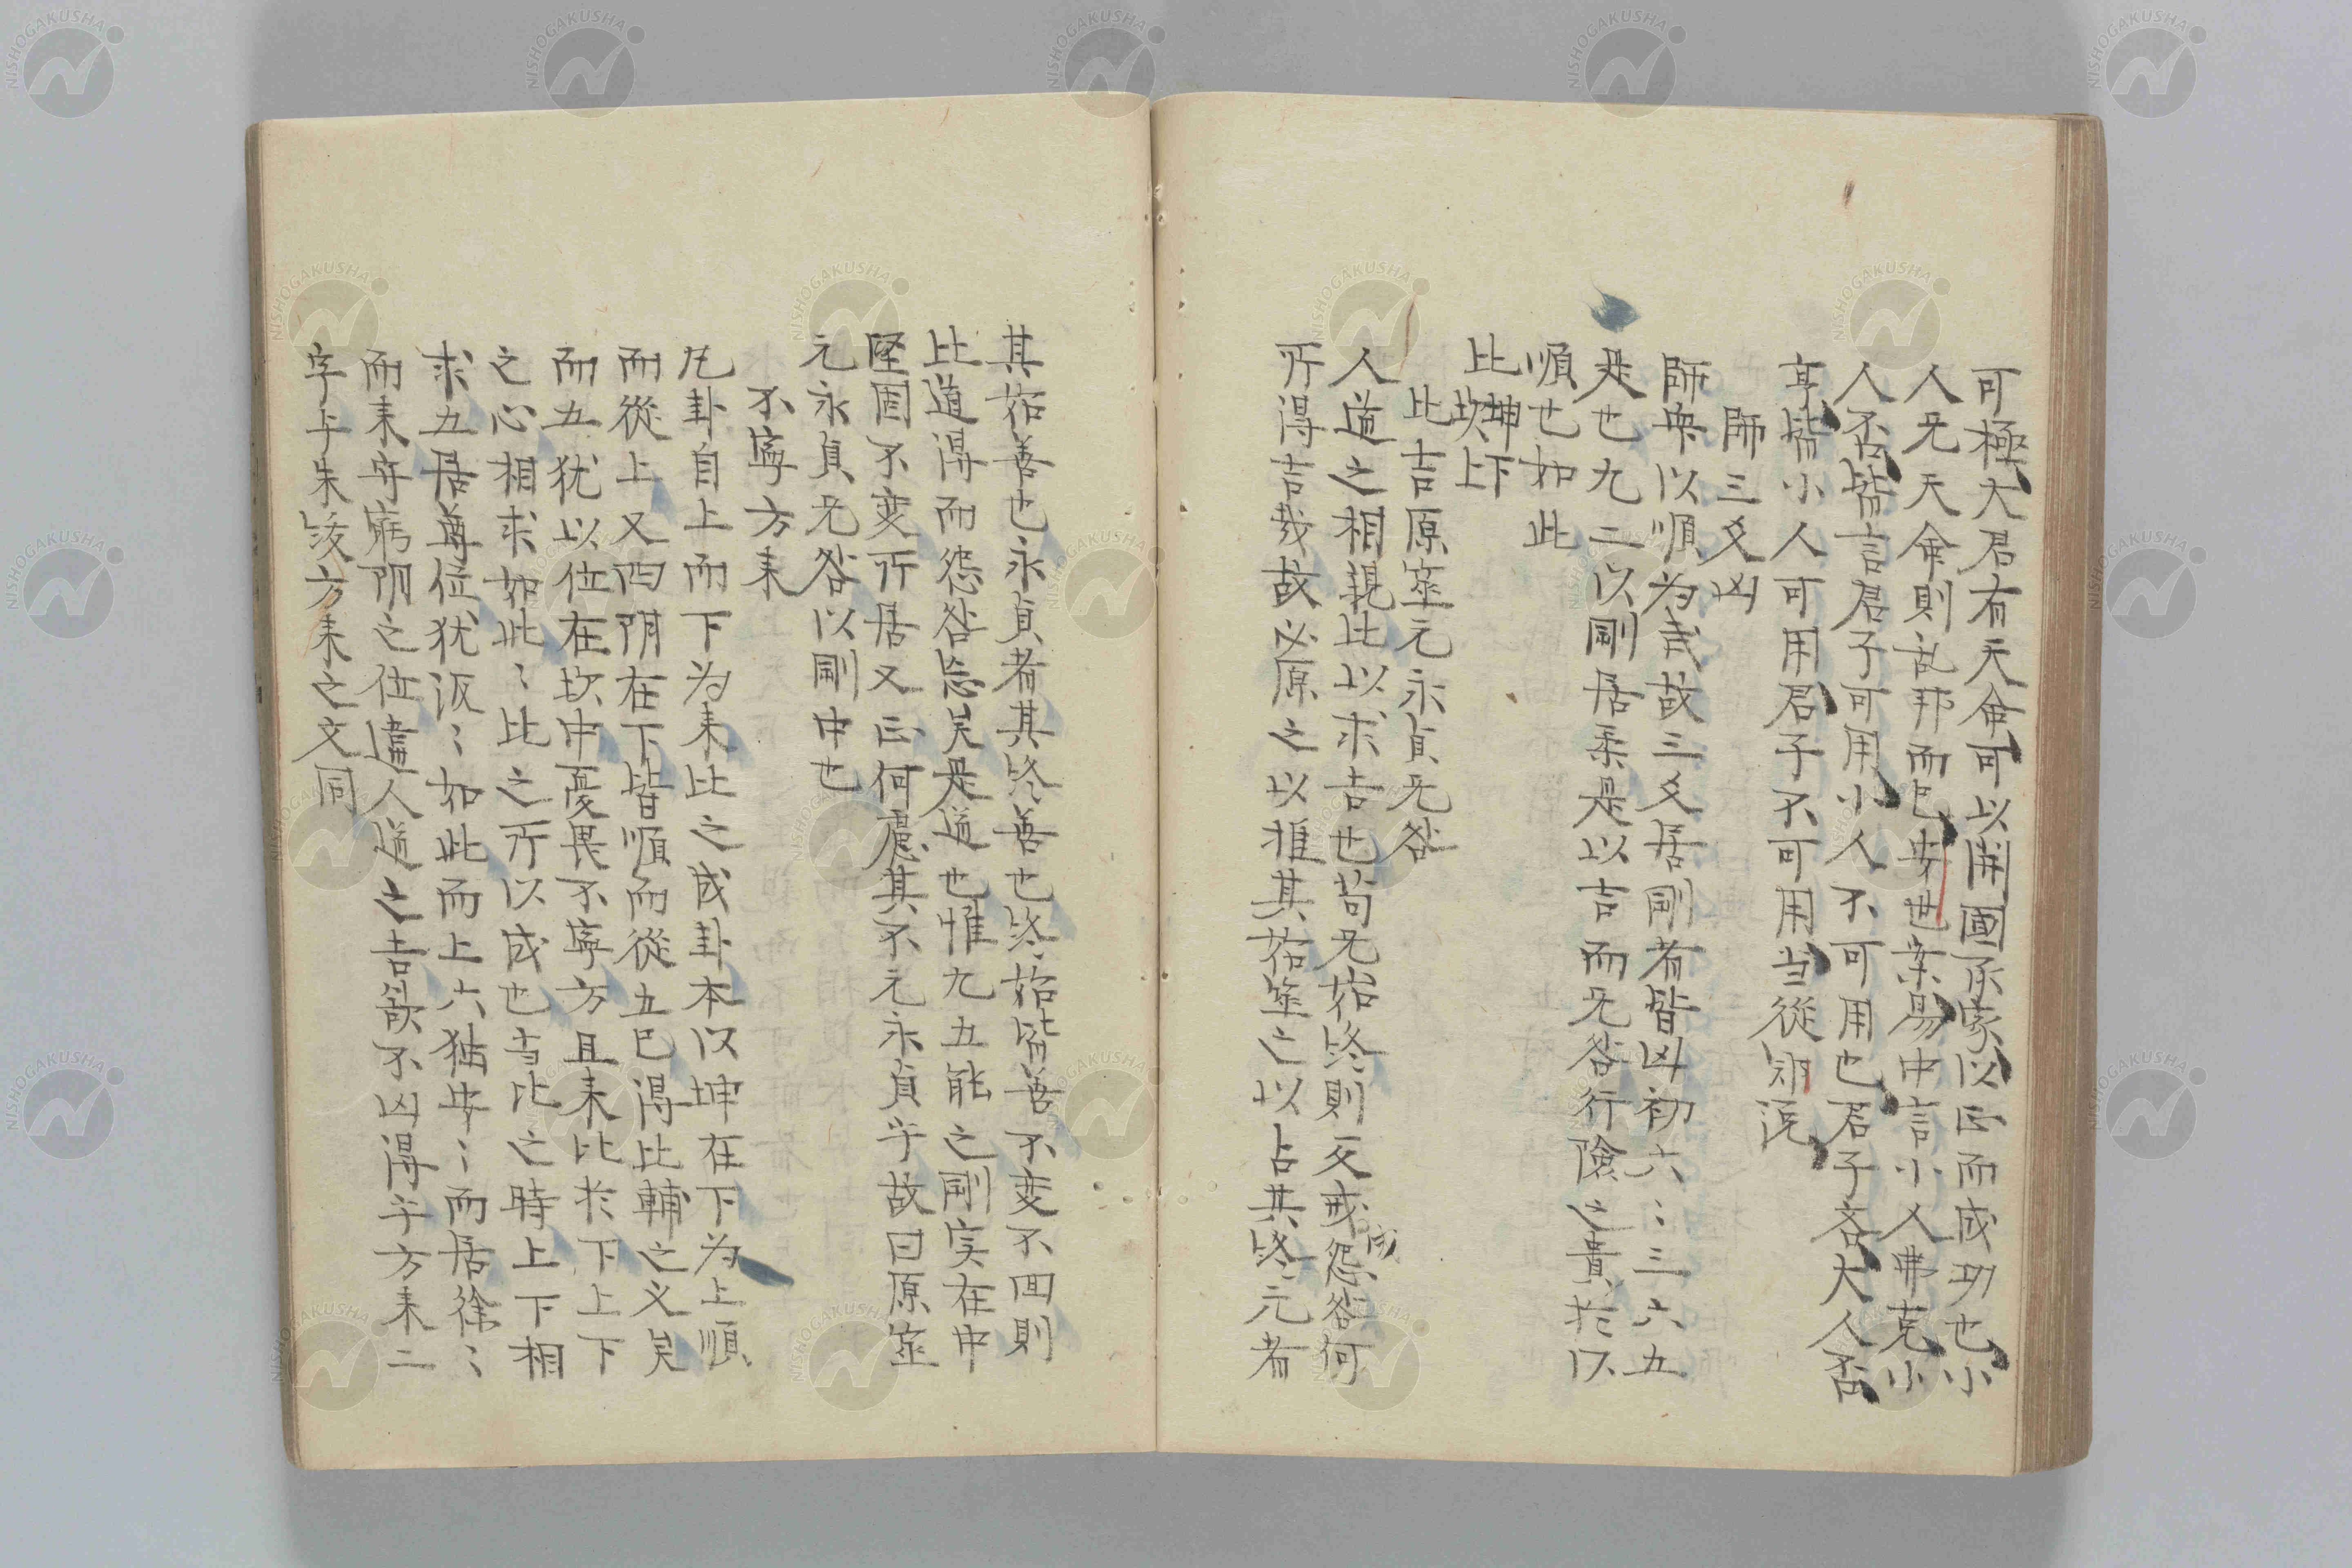 可極大君有天命可以開國承家以正而成功也小
人无天命則乱邦而已安世案易中言小人弗克小
人否皆言君子可用小人不可用也君子吝大人否
亨皆小人可用君子不可用当從別說
師三爻凶
師衆以順为武故三爻居剛者皆凶初六〻三六五
是也九二以剛居柔是以吉而无咎行險之貴於以
順也如此
比坎上坤下
比吉原筮元永貞无咎
人道之相親比以求吉也苟无始終則反戒怨咎何
成
所得吉哉故必原之以推其始筮之以占其終元者
其始善也永貞者其終善也終始皆善不変不回則
比道得而怨咎忘矣是道也惟九五能之剛実在中
堅固不変所居又正何慮其不元永貞乎故曰原筮
元永貞无咎以剛中也
不寧方来
凡卦自上而下为来比之成卦本以坤在下为上順
而從上又四阴在下皆順而從五已得比輔之义矣
而五犹以位在坎中憂畏不寧方且来比於下上下
之心相求如此〻比之所以成也当比之時上下相
求五居尊位犹汲〻如此而上六独安〻而居徐〻
而来守窮阴之位違人道之吉欲不凶得乎方来二
字与朱紱方来之文同